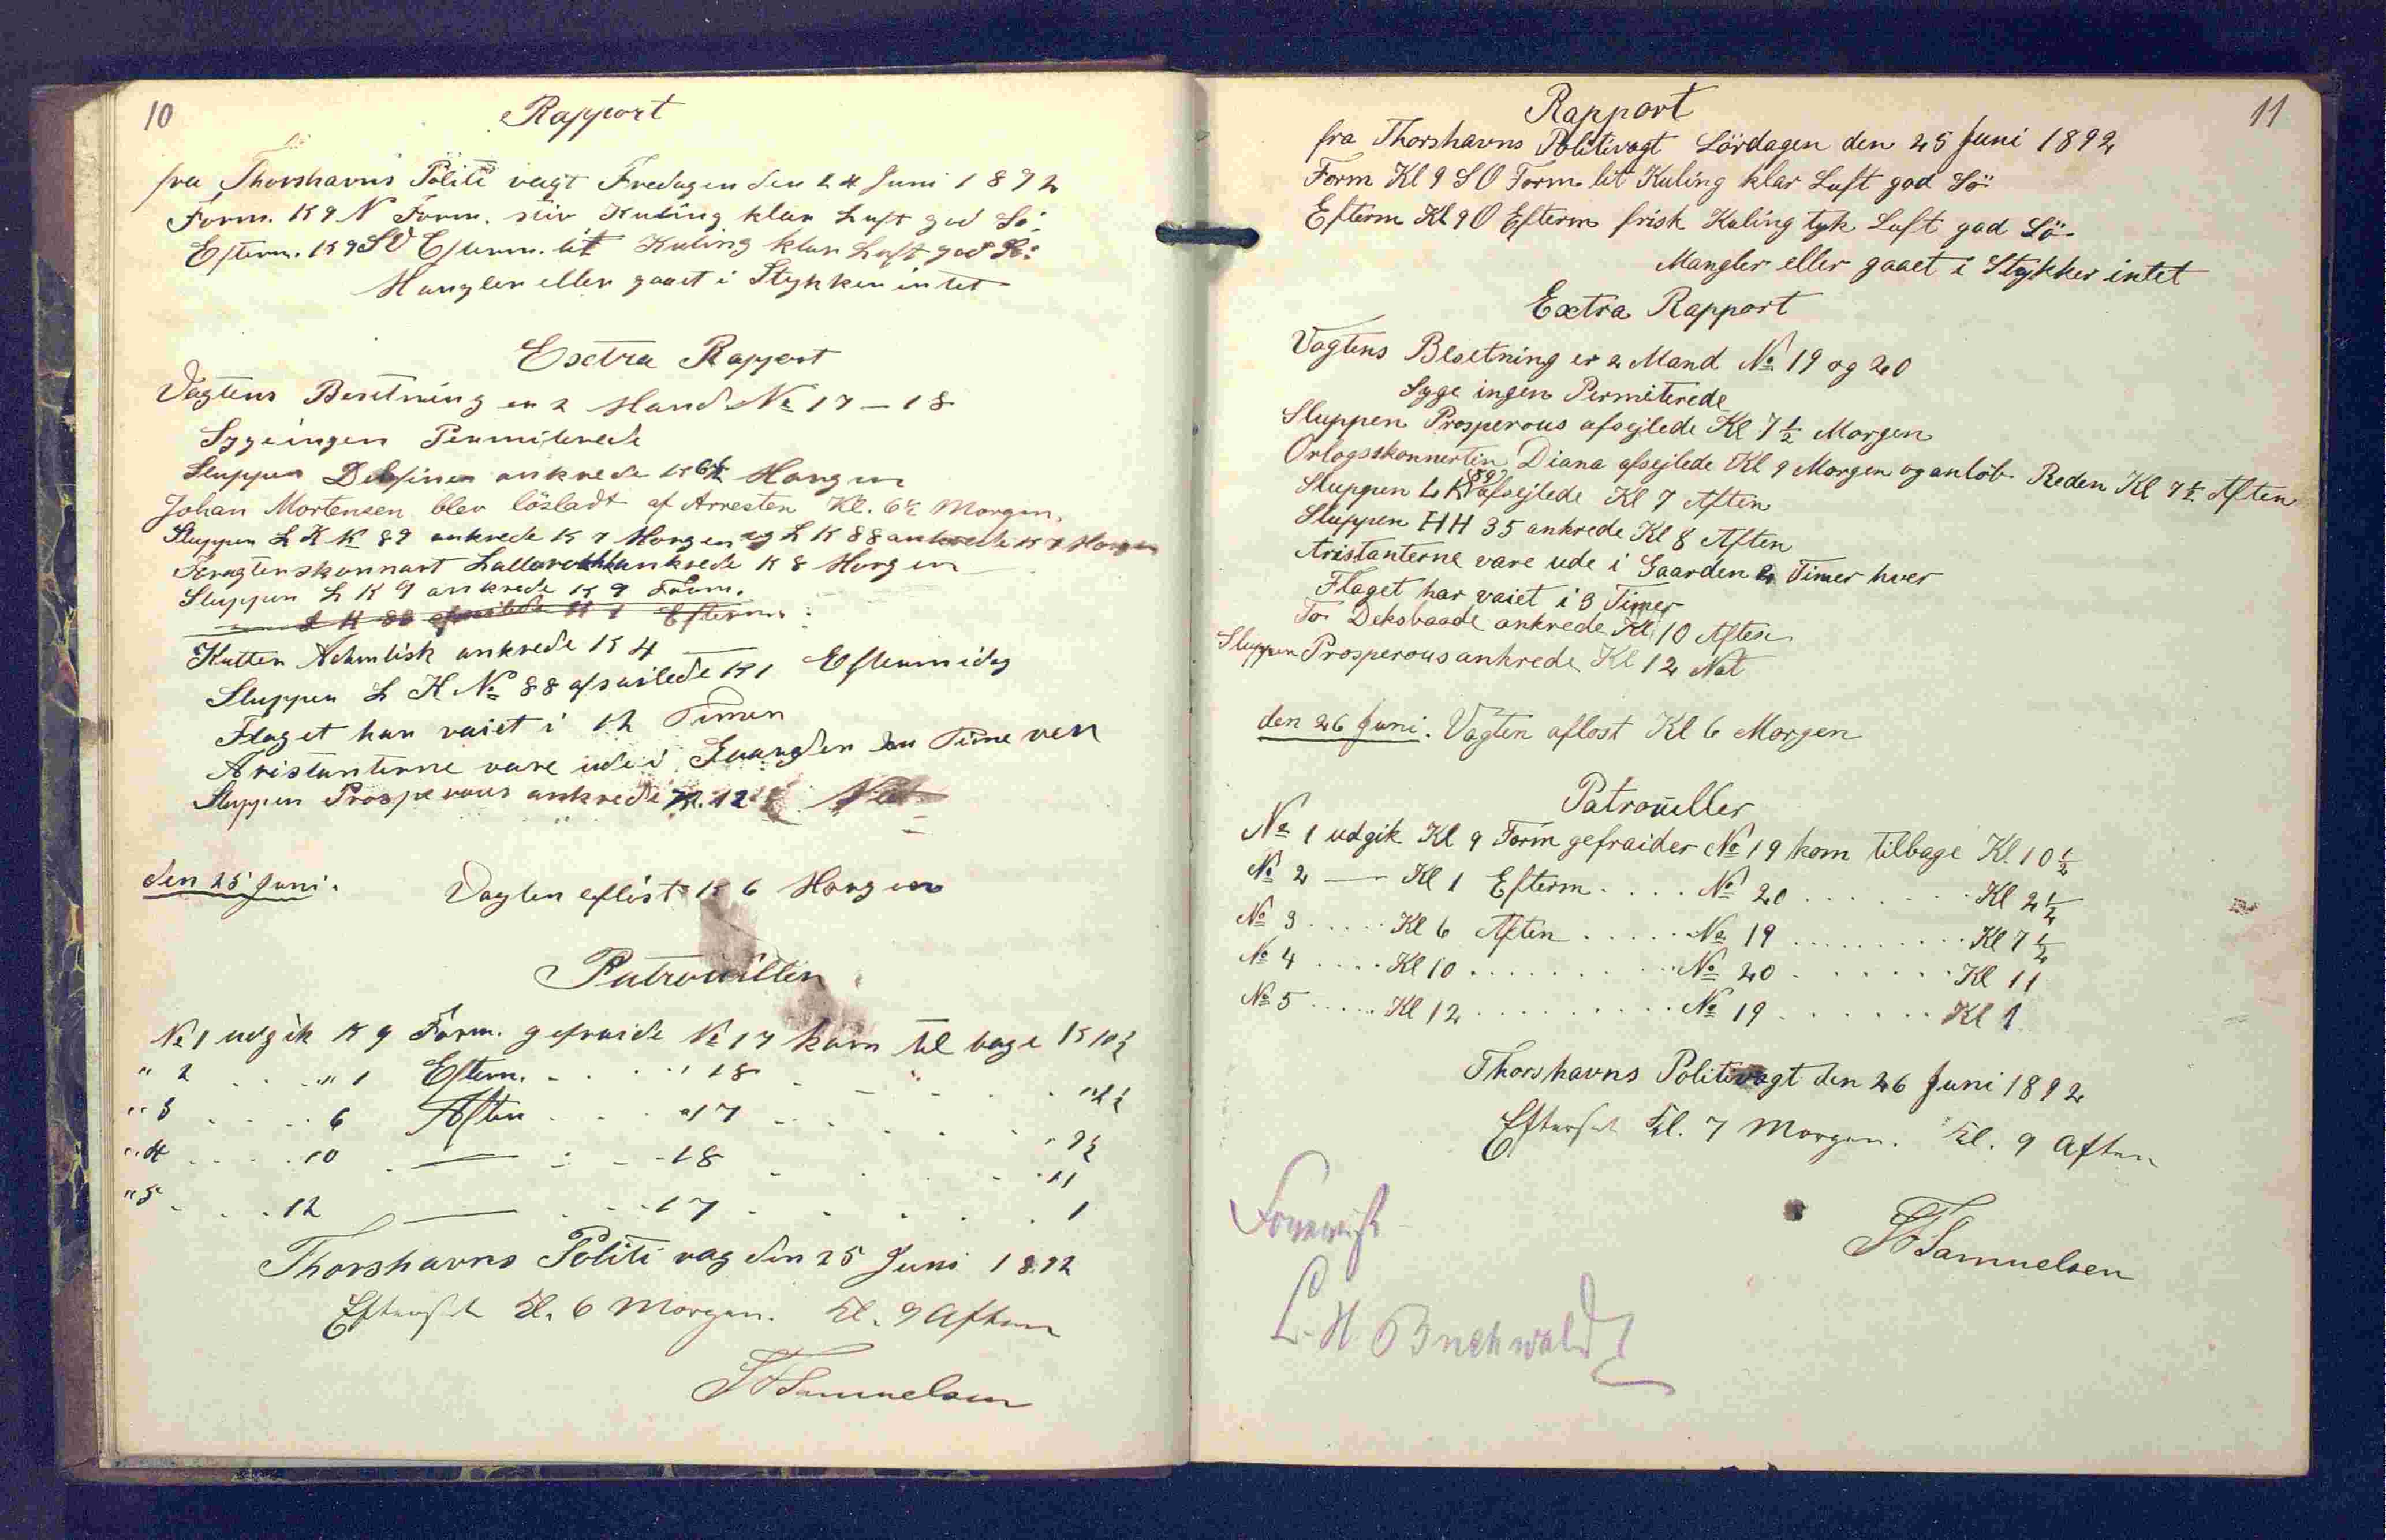 10
Rapport
fra Thorshavns Politi vagt Fredagen den 24 Juni 1892
Form. K 9 N Form. stiv Kuling klar Luft god Sö.
Efterm. K 9 SV Efterm. lit Kuling klar Luft god Sö:
Mangler eller gaaet i Stykker intet
Extra Rapport
Vagtens Besetning er 2 Mand No 17 – 18
Syge ingen Permiterede
Sluppen Delfinen ankrede K 6½ Morgen
Johan Mortensen blev lösladt af Arresten Kl. 6½ Morgen.
Sluppen L K 89 ankrede K 7 Morgen og L K 88 ankrede K 7 Morgen
Fragtenskonnart Lallarokh ankrede K 8 Morgen
Sluppen L K 9 ankrede K 9 Form.
L K 88 afseilede K 1 Efterm.
Kutter ankrede K 4 —
Sluppen L K No 88 afseilede K 1 Eftermidag
Flaget har vaiet i 12 Timer
Aristanterne vare ude i Time ver
Sluppen Prosperous ankrede Kl. 12 Nat
den 25 Juni. Vagten aflöst K 6 Morgen
Patrouiller
No 1 udgik K 9 Form. gefraide No 17 kom tilbage K 10½
" 2 . . " 1 Efterm. . . . 18 . . . " 2½
" 3 . . . 6 Aften . . " 17 . . . " 7½
" 4 . . . 10 — . . 18 . . . 11
" 5 . . . 12 — . . 17 . . . 1
Thorshavns Politi vag den 25 Juni 1892
Efterset Kl. 6 Morgen. Kl. 9 Aften
Samuelsen
11
Rapport
fra Thorshavns Politivagt Lördagen den 25 Juni 1892
Form Kl 9 SO Form. lit Kuling klar Luft god Sö
Efterm Kl 9 O Efterm frisk Kuling tyk Luft god Sö
Mangler eller gaaet i Stykker intet
Extra Rapport
Vagtens Besetning er 2 Mand No 19 og 20
Syge ingen Permiterede
Sluppen Prosperous afsejlede Kl 7½ Morgen
Orlogsskonnertin Diana afsejlede Kl 9 Morgen og anlöb Reden Kl 7½ Aften
Sluppen L K (89) afsejlede Kl 7 Aften
Sluppen HH 35 ankrede Kl 8 Aften
Aristanterne vare ude i Gaarden 2 Timer hver
Flaget har vaiet i 3 Timer
To Deksbaade ankrede Kl 10 Aften
Sluppen Prosperous ankrede Kl 12 Nat
den 26 Juni. Vagten aflöst Kl 6 Morgen
Patrouiller
No 1 udgik Kl 9 Form gefraider No 19 kom tilbage Kl 10½
No 2 — Kl 1 Efterm . . . . No 20 . . . . . . . Kl 2½
No 3 . . . . . Kl 6 Aften . . . . . No 19 . . . . . . . . . . Kl 7½
No 4 . . . . Kl 10 . . . . . . . . . No 20 . . . . . . . Kl 11
No 5 . . . . . Kl 12 . . . . . . . . . No 19 . . . . . . Kl 1
Thorshavns Politivagt den 26 Juni 1892
Efterset Kl. 7 Morgen. Kl. 9 Aften
Samuelsen
Forevist
L. H Buchwaldt